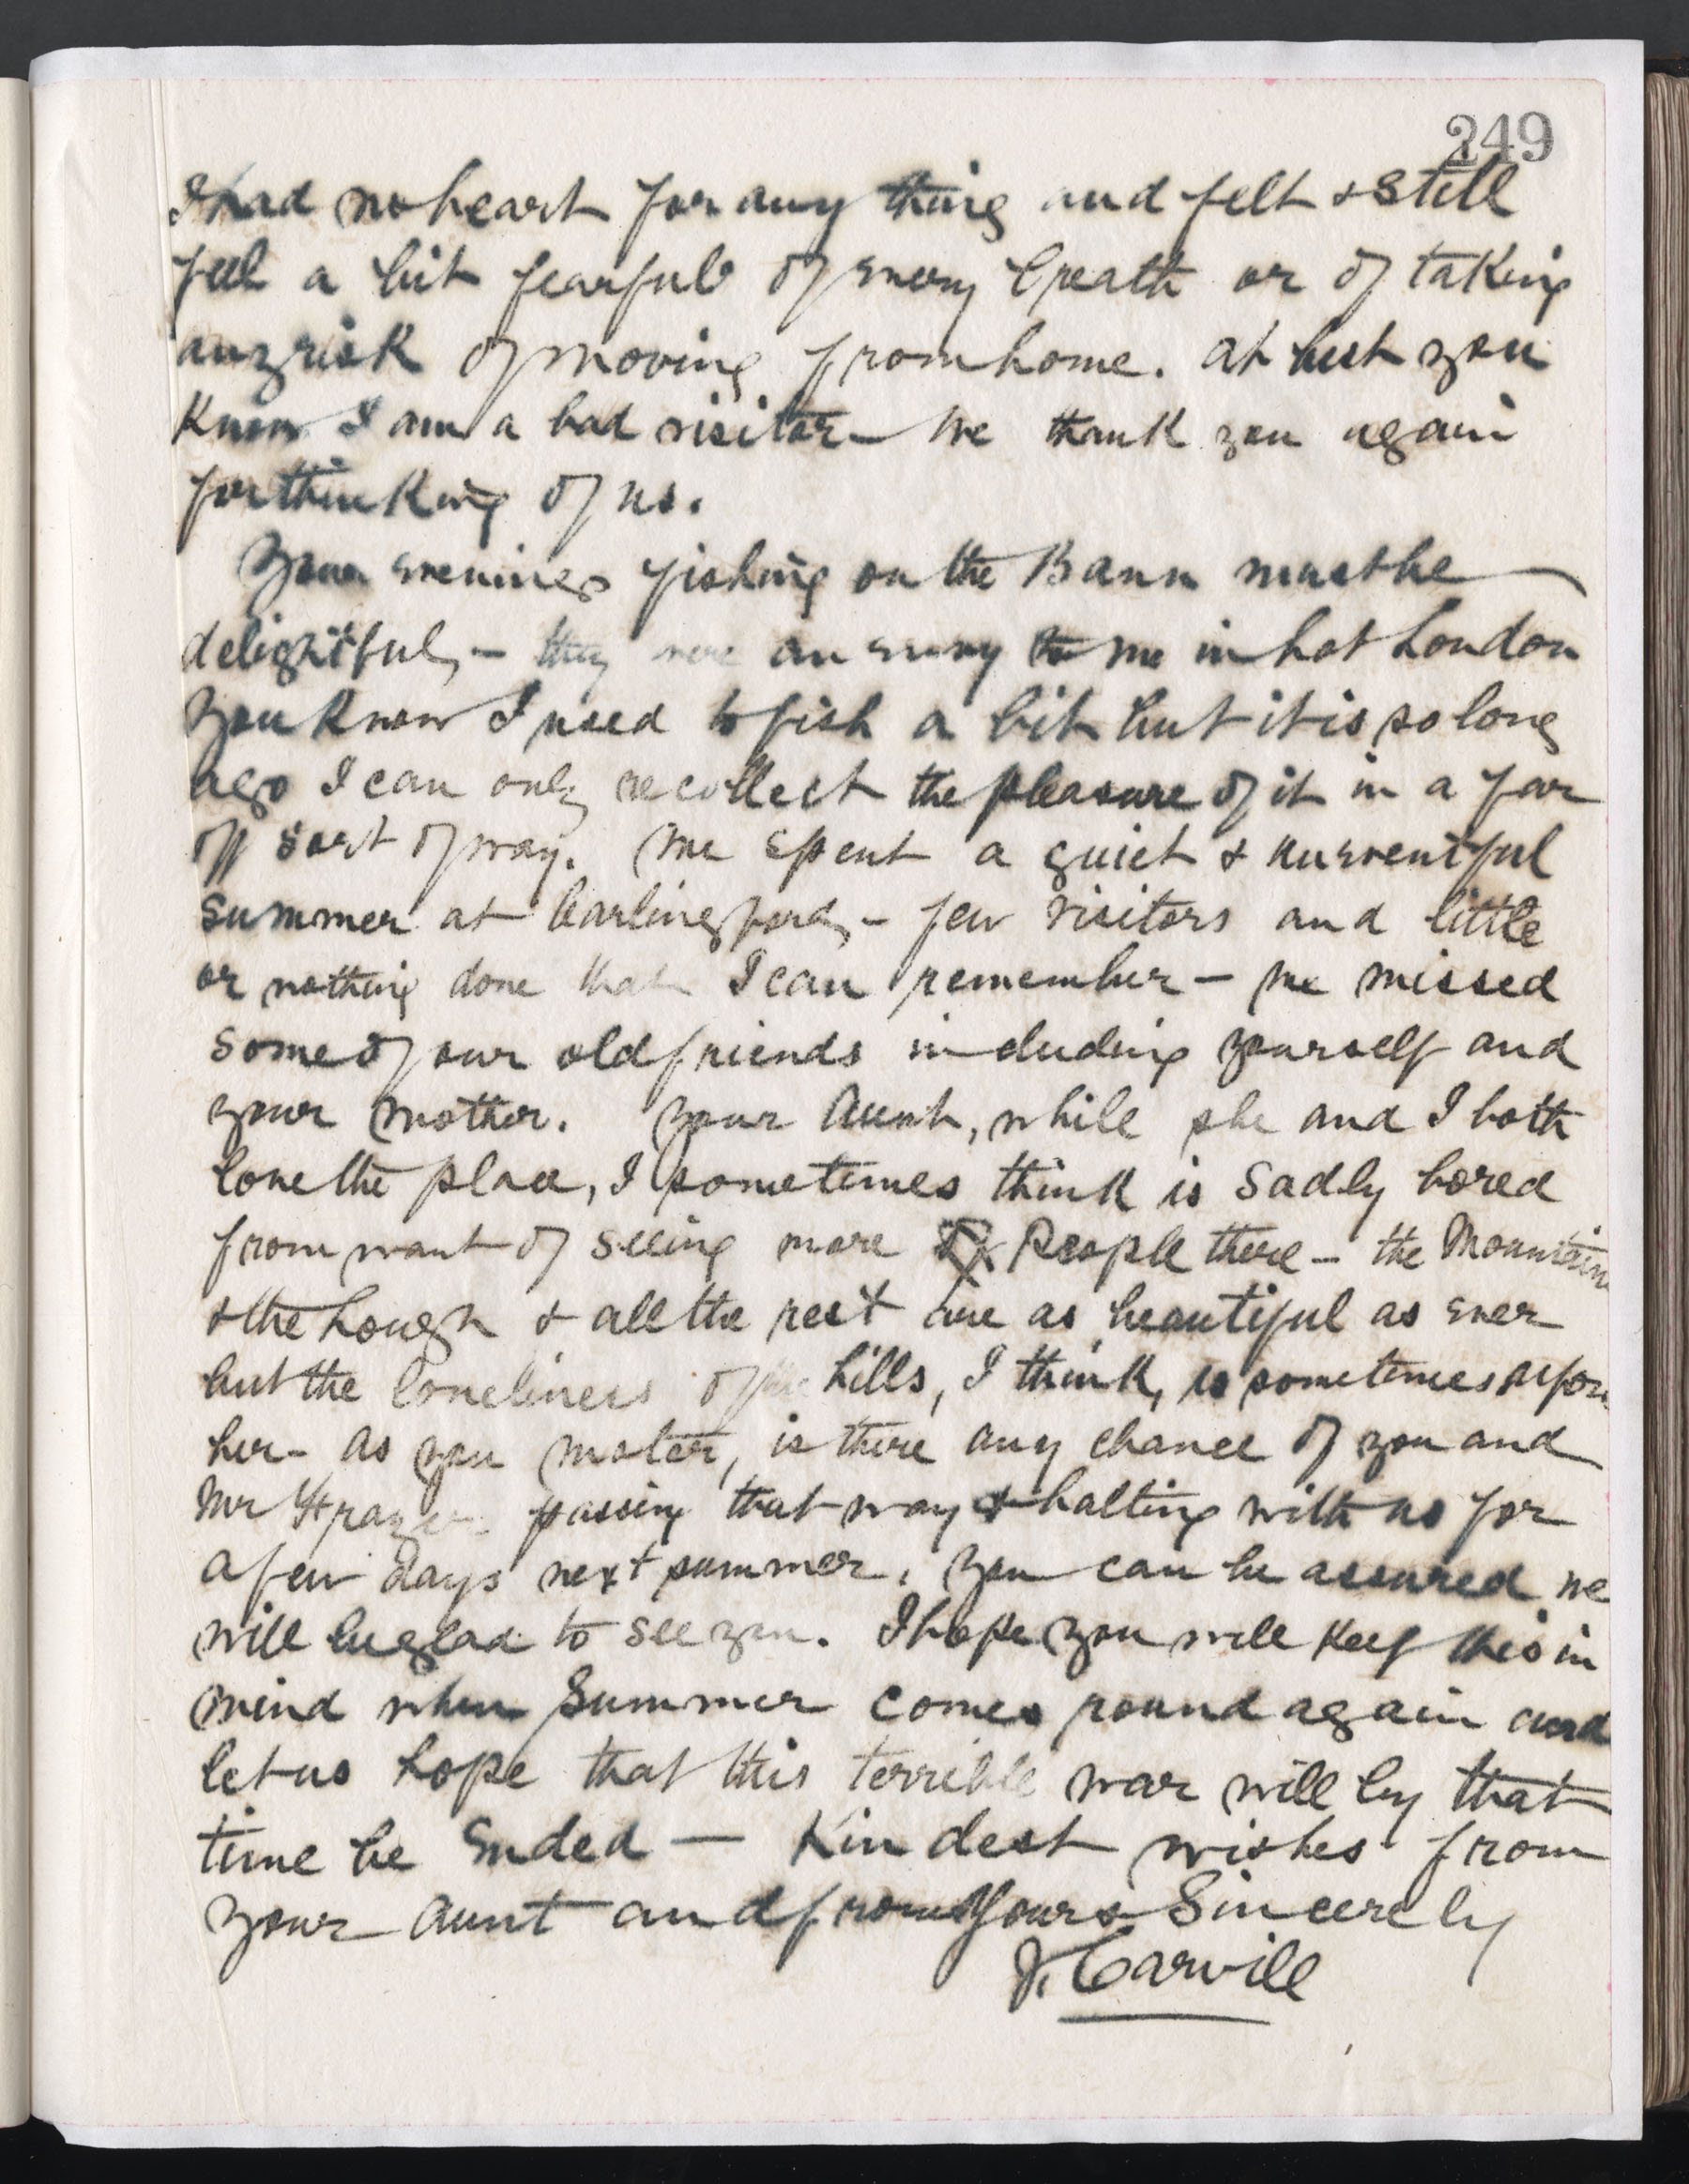 249
I had no heart for any thing and felt & still
feel a bit fearful of every breath or of taking
any risk of moving from home. at best you
know I am a bad visitor — We thank you again
for thinking of us.
Your evenings fishing on the Bann must be
delightful, — they were an envy to me in hot London
You know I used to fish a bit but it is so long
ago I can only recollect the pleasure of it in a far
off sort of way. We spent a quiet & uneventful
summer at Carlingford, — few visitors and little
or nothing done that I can remember — we missed
some of our old friends including yourself and
your mother. Your Aunt, while she and I both
love the place, I sometimes think is sadly bored
from want of seeing more People there — the Mountain
& the Lough & all the rest are as beautiful as ever
but the loneliness of the hills, I think, is sometimes upon
her — As you motor, is there any chance of you and
Mr Frazer passing that way & halting with us for
a few days next summer, you can be assured we
will be glad to see you. I hope you will keep this in
mind when Summer comes round again and
let us hope that this terrible war will by that
time be Ended — Kindest wishes from
your Aunt and from Yours Sincerely
J. Carvill